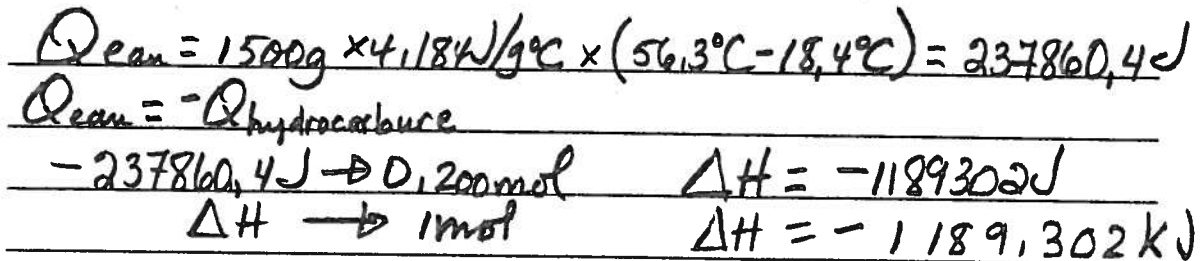 Qeau = 1500g ×4,184J/g°C × (56,3°C-18,4°C) = 237860,4J
Qeau = -Qhydrocarbure
-237860,4J → 0,200mol ΔH = -1189302J
ΔH → 1mol ΔH = - 1 189,302 kJ